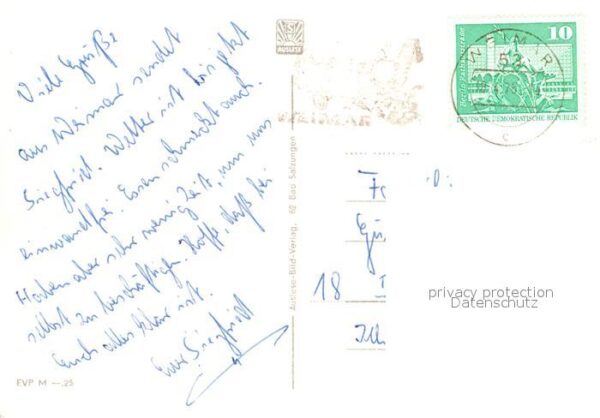 Viele Grüße
aus Weimar sendet
Siegfried. Wetter ist bis jetzt
einwandfrei. Essen schmeckt auch.
Haben aber sehr wenig Zeit, um uns
selbst zu beschäftigen. Hoffe, daß bei
Euch alles klar ist.
Euer Siegfried
EVP M —,25
Auslese-Bild-Verlag, 62 Bad Salzungen
AUSLESE
WEIMAR
WEIMAR
53
c
10
DEUTSCHE DEMOKRATISCHE REPUBLIK
18
privacy protection
Datenschutz